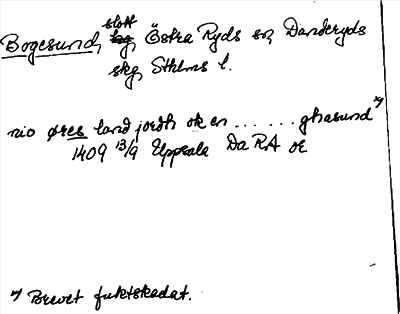 Bogesund, slott, Östra Ryds sn, Danderyds
skg, Sthlms l.
nio øres land jordh ok en ... ... ghasund *)
1409 13/9 Uppsala Da RA or
*) Brevet fuktskadat.